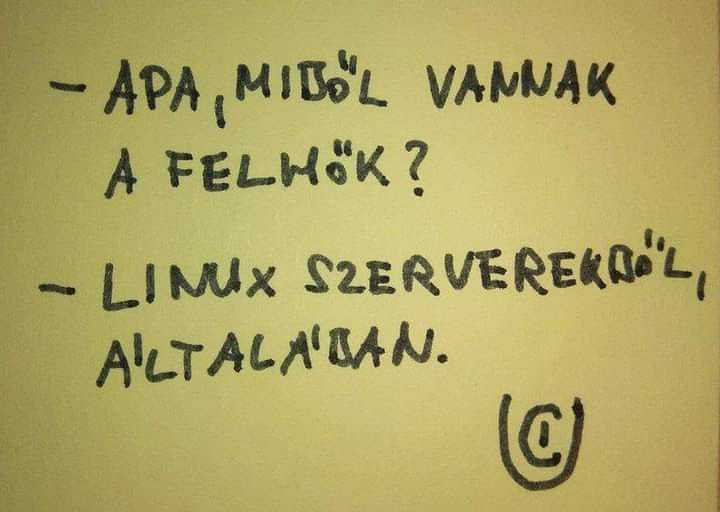 - APA, MIBŐL VANNAK
A FELHŐK?
- LINUX SZERVEREKBŐL,
ÁLTALÁBAN.